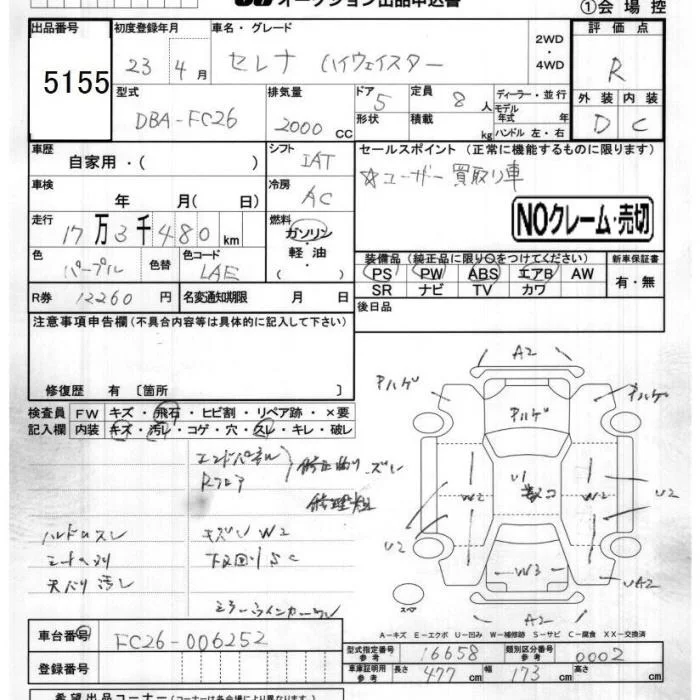 オークション出品申込書
①会場控
出品番号
5155
初度登録年月
23年 4月
車名・グレード
セレナ ハイウェイスター
2WD
・
4WD
評価点
R
型式
DBA-FC26
排気量
2000 CC
ドア
5
形状
定員
8人
積載
kg
ディーラー・並行
モデル年式 年
ハンドル 左・右
外装 内装
D C
車歴
自家用・( )
シフト
IAT
セールスポイント (正常に機能するものに限ります)
☆ユーザー買取り車
NOクレーム・売切
車検
年 月( 日)
冷房
AC
走行
17万3千480km
燃料
ガソリン
・
軽油
( )
色
パープル
色替
色コード
LAE
装備品 (純正品に限り○をつけてください)
PS PW ABS エアB AW
SR ナビ TV カワ
新車保証書
有・無
R券 12260円
名変通知期限 月 日
後日品
注意事項申告欄(不具合内容等は具体的に記入して下さい)
修復歴 有〔箇所 〕
検査員記入欄
FW キズ・飛石・ヒビ割・リペア跡・×要
内装 キズ・汚レ・コゲ・穴・スレ・キレ・破レ
エンドパネル
Rフロア
修正曲り・ズレ
ハンドルスレ
天バリ汚レ
キズ凹W2
下回りSC
ミラーウインカーワレ
A2
Pハゲ
Pハゲ
Pハゲ
U1
W2
W2
U2
U2
W3
UA2
A2
スペア
A-キズ E-エクボ U-凹み W-補修跡 S-サビ C-腐食 XX-交換済
車台番号
FC26-006252
登録番号
型式指定番号 参考 16658
類別区分番号 参考 0002
車庫証明用 参考 長さ 477cm 幅 173cm 高さ cm
希望出品コーナー(コーナーは各会場により異なります)